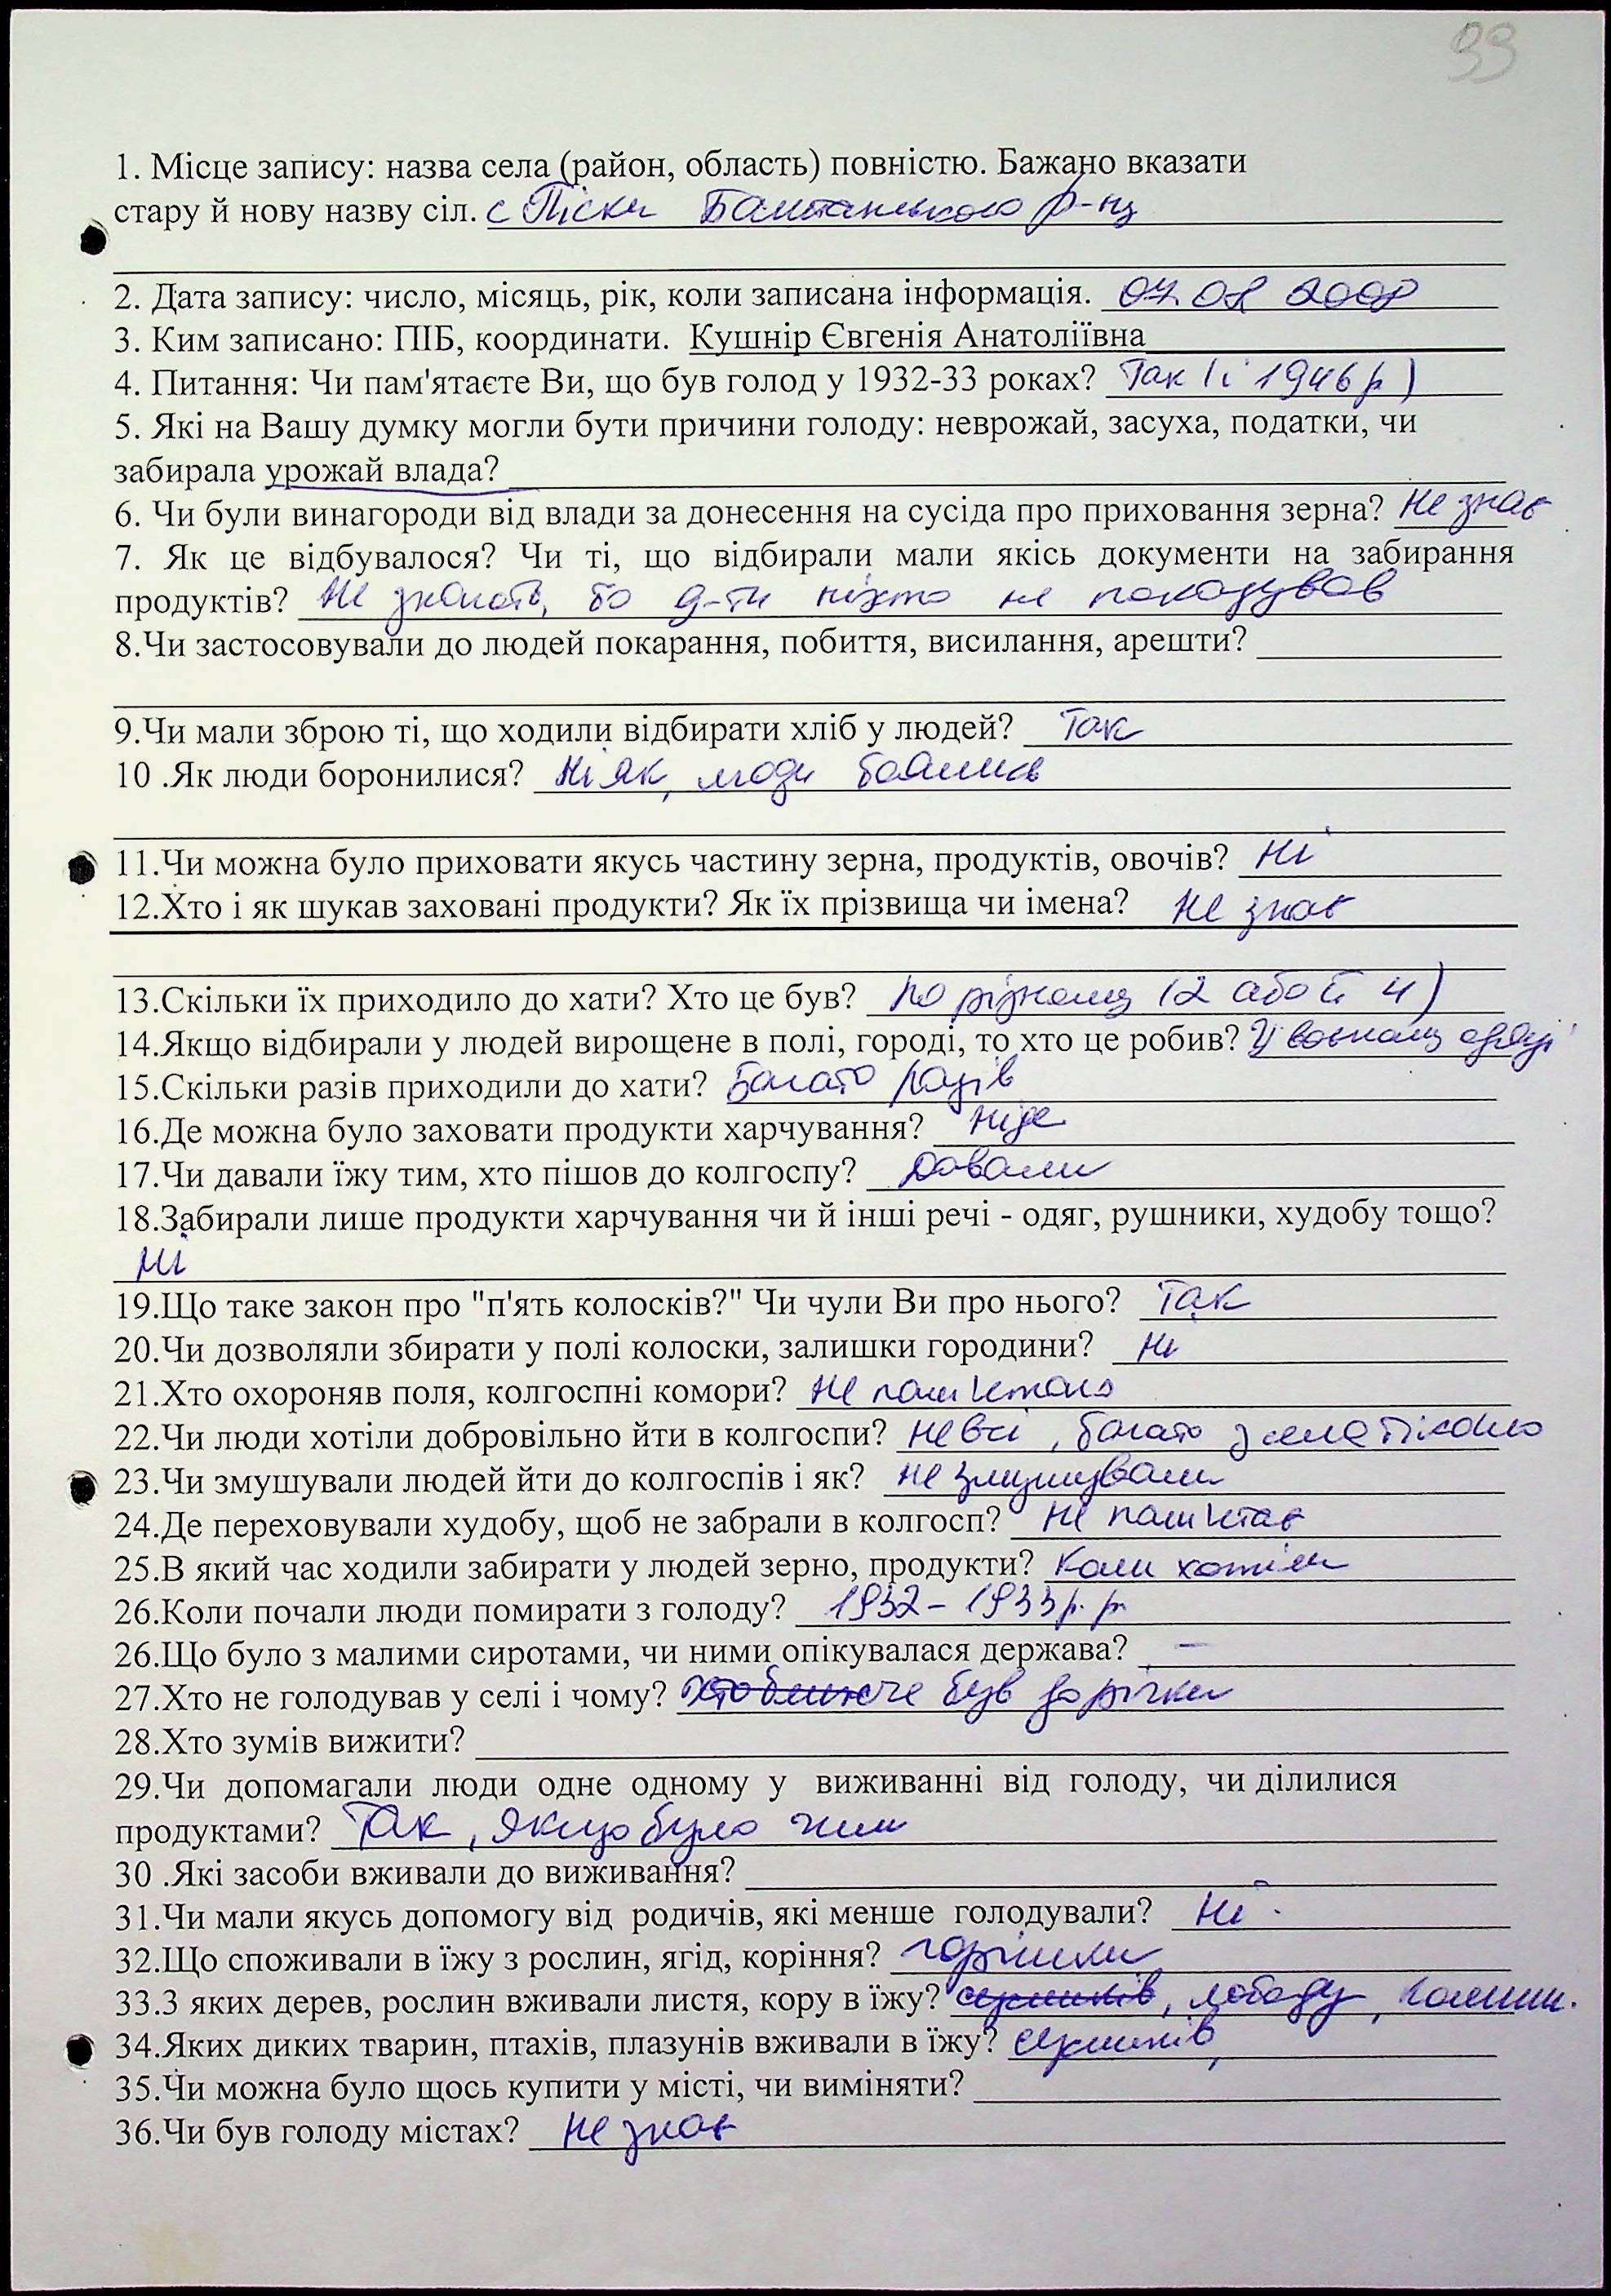 99
1. Місце запису: назва села (район, область) повністю. Бажано вказати
стару й нову назву сіл. с Піски Баштанського р-ну
2. Дата запису: число, місяць, рік, коли записана інформація. 07 08 2008
3. Ким записано: ПІБ, координати. Кушнір Євгенія Анатоліївна
4. Питання: Чи пам'ятаєте Ви, що був голод у 1932-33 роках? Так (і 1946 р)
5. Які на Вашу думку могли бути причини голоду: неврожай, засуха, податки, чи
забирала урожай влада?
6. Чи були винагороди від влади за донесення на сусіда про приховання зерна? Не знає
7. Як це відбувалося? Чи ті, що відбирали мали якісь документи на забирання
продуктів? Не знають, бо д-ти ніхто не показував
8.Чи застосовували до людей покарання, побиття, висилання, арешти?
9.Чи мали зброю ті, що ходили відбирати хліб у людей? Так
10 .Як люди боронилися? Ніяк, люди боялись
11.Чи можна було приховати якусь частину зерна, продуктів, овочів? Ні
12.Хто і як шукав заховані продукти? Як їх прізвища чи імена? Не знає
13.Скільки їх приходило до хати? Хто це був? По різному (2 або й 4)
14.Якщо відбирали у людей вирощене в полі, городі, то хто це робив? У воєнному одязі
15.Скільки разів приходили до хати? Багато разів
16.Де можна було заховати продукти харчування? Ніде
17.Чи давали їжу тим, хто пішов до колгоспу? Давали
18.Забирали лише продукти харчування чи й інші речі - одяг, рушники, худобу тощо?
Ні
19.Що таке закон про "п'ять колосків?" Чи чули Ви про нього? Так
20.Чи дозволяли збирати у полі колоски, залишки городини? Ні
21.Хто охороняв поля, колгоспні комори? Не пам'ятає
22.Чи люди хотіли добровільно йти в колгоспи? Не всі, багато з села тікало
23.Чи змушували людей йти до колгоспів і як? Не змушували
24.Де переховували худобу, щоб не забрали в колгосп? Не пам'ятає
25.В який час ходили забирати у людей зерно, продукти? Коли хотіли
26.Коли почали люди помирати з голоду? 1932 – 1933 р.р.
26.Що було з малими сиротами, чи ними опікувалася держава? –
27.Хто не голодував у селі і чому? Хто ближче був до річки
28.Хто зумів вижити?
29.Чи допомагали люди одне одному у виживанні від голоду, чи ділилися
продуктами? Так, якщо було чим
30 .Які засоби вживали до виживання?
31.Чи мали якусь допомогу від родичів, які менше голодували? Ні
32.Що споживали в їжу з рослин, ягід, коріння? горішки
33.З яких дерев, рослин вживали листя, кору в їжу? сусликів, лободу,
34.Яких диких тварин, птахів, плазунів вживали в їжу? сусликів,
35.Чи можна було щось купити у місті, чи виміняти?
36.Чи був голоду містах? Не знає